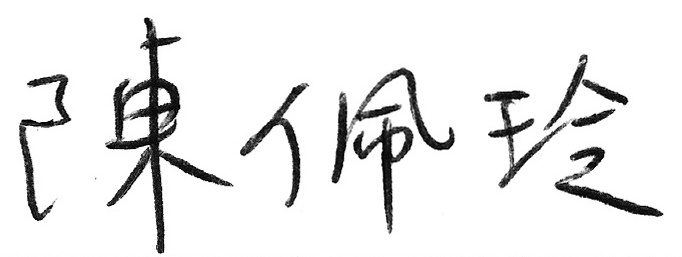 陳佩玲